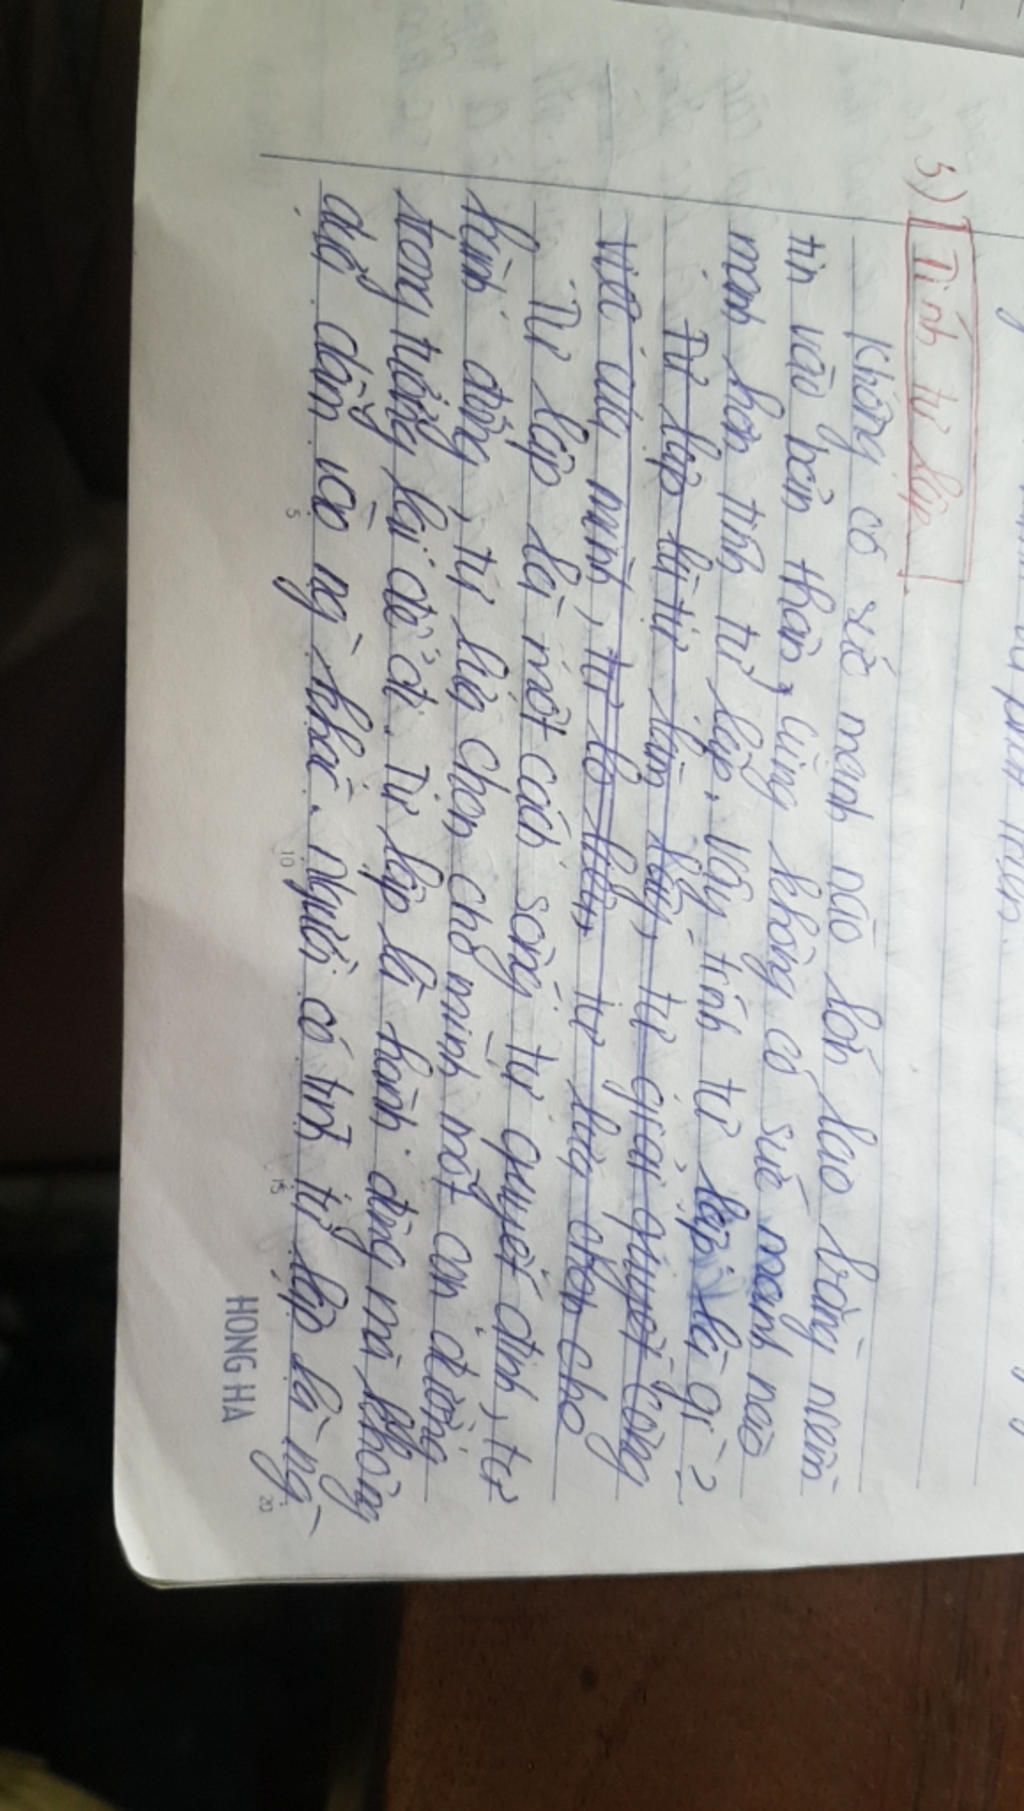 3) Tính tự lập
Không có sức mạnh nào lớn lao bằng niềm
tin vào bản thân, cũng không có sức mạnh nào
mạnh hơn tính tự lập. Vậy tính tự lập là gì?
Tự lập là tự làm lấy, tự giải quyết công
việc của mình, tự lo liệu, tự lựa chọn cho
Tự lập là một cách sống tự quyết định, tự
hành động, tự lựa chọn cho mình một con đường
trong tương lai để đi. Tự lập là hành động mà không
dựa dẫm vào ng` khác. Người có tính tự lập là ng`
HONG HA
5 10 15 20